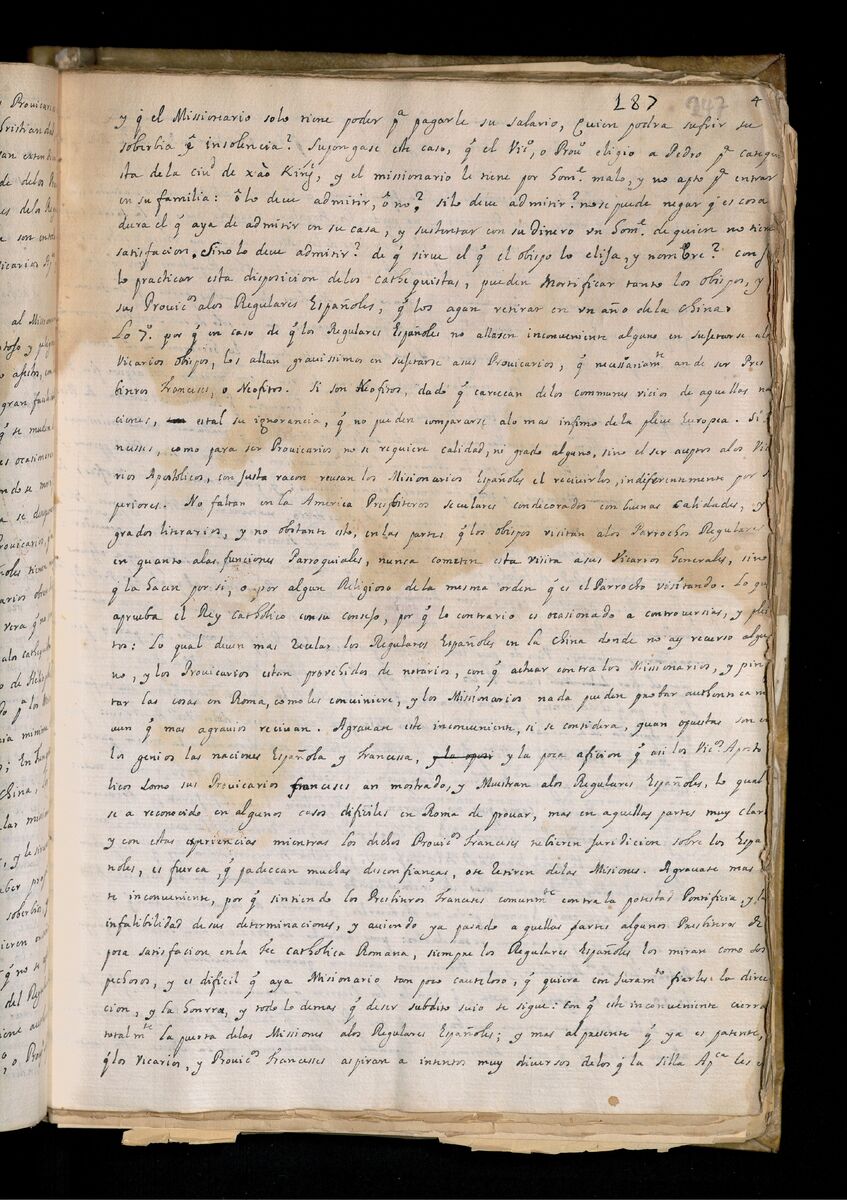 187 247 4
y q̃ el Missionario solo tiene poder pª pagarle su salario, Quien podra sufrir su
soberbia q̃ insolencia? Supongase este caso, q̃ el Vicº, o Prouº eligio a Pedro pª categui
sta de la ciud de xào King, y el missionario le tiene por homᵉ malo, y no apto pª entrar
en su familia: ô lo deve admitir, ô no? si lo deve admitir? no se puede negar q̃ es cosa
dura el q̃ aya de admitir en su casa, y sustentar con su dinero vn homᵉ de quien no tiene
satisfacion. Sino lo deve admitir? de q̃ sirve el q̃ el obispo lo elija, y nombre? con
lo practicar esta disposicion delos catheguistas, pueden Mortificar tanto los obispos, y
sus Provicºˢ alos Regulares Españoles, q̃ los agan retirar en vn año de la China.
Lo 7º. por q̃ en caso de q̃ los Regulares Españoles no allasen inconveniente alguno en sujetarse alos
Vicarios obispos, los allan gravissimos en sujetarse asus Provicarios, q̃ necessariamᵗᵉ an de ser Pres
biteros Franceses, o Neofitos. Si son Neofitos, dado q̃ carezcan delos communes vicios de aquellas na
ciones, es tal su ignorancia, q̃ no pueden compararse alo mas infimo de la pleve Europea. Si
ncesses, como para ser Provicarios no se requiere calidad, ni grado alguno, sino el ser aceptos alos Vica
rios Apostolicos, con justa racon reusan los Misionarios Españoles el recivirlos, indiferentemente por su
periores. No faltan en la America Presbiteros seculares condecorados con buenas calidades, y
grados literarios, y no obstante esto, en las partes q̃ los obispos visitan alos Parrochos Regulares
en quanto alas funciones Parroquiales, nunca cometen esta visita asus Vicarios Generales, sino
q̃ la hacen por si, o por algun Religioso de la mesma orden q̃ es el Parrocho visitando. Lo qual
aprueba el Rey catholico con su consejo, por q̃ lo contrario es ocasionado a controversias, y plei
tos: Lo qual deven mas recelar los Regulares Españoles en la China donde no ay recurso algu
no, y los Provicarios estan provehidos de notarios, con q̃ actuar contra los Missionarios, y pin
tar las cosas en Roma, como les conviniere, y los Missionarios nada pueden probar authenticam
aun q̃ mas agravios recivan. Agravase este inconveniente, si se considera, quan opuestas son en
los genios las naciones Española y Francessa, y la oposi y la poca aficion q̃ asi los Vicºˢ Aposto
licos como sus Provicarios franceses an mostrado, y Muestran alos Regulares Españoles, lo qual
se a reconocido en algunos casos dificiles en Roma de provar, mas en aquellas partes muy claros
y con estas experiencias mientras los dichos Provicºˢ Franceses tubieren Juridicion sobre los Espa
ñoles, es fuerca, q̃ padezcan muchas desconfianças, o se retiren delas Misiones. Agravase mas es
te inconveniente, por q̃ sintiendo los Presbiteros Franceses comunmᵗᵉ contra la potestad Pontificia, y la
infalibilidad de sus determinaciones, y auiendo ya pasado a quellas partes algunos Presbiteros de
poca satisfacion en la Fee catholica Romana, siempre los Regulares Españoles los miran como sos
pechosos, y es dificil q̃ aya Missionario tan poco cauteloso, q̃ quiera con juramᵗᵒ fiarles la direc
cion, y la honrra, y todo lo demas q̃ de ser subdito suio se sigue: con q̃ este inconveniente cierra
totalmᵗᵉ la puerta delas Missiones alos Regulares Españoles; y mas al presente q̃ ya es patente,
q̃ los Vicarios, y Provicºˢ Francesses aspiran a intentos muy diversos delos q̃ la silla Apᶜᵃ les